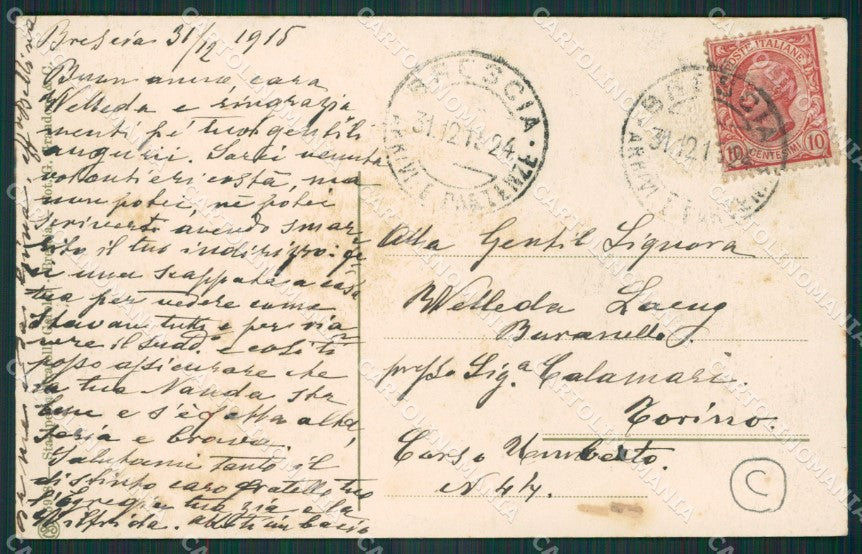 Brescia 31/12 1915
Buon anno cara
Welleda e ringrazia
menti pé tuoi gentili
auguri. Sarei venuta
volontieri costà, ma
non potei, nè potei
scriverti avendo smar
rito il tuo indirizzo.
una scappata a casa
tua per vedere come
stavan tutti e per ria
vere il sudd. e così ti
posso assicurare che
la tua Nanda sta
bene e s'è fatta alta,
seria e brava.
Salutami tanto il
distinto caro fratello tuo
tua zia e la
un bacio
BRESCIA
31.12.15 24
ARRIVI E PARTENZE
BRESCIA
31.12.15
ARRIVI E PARTENZE
POSTE ITALIANE
10 CENTESIMI 10
Alla Gentil Signora
Welleda Laeng
Buranello
presso Sig.a Calamari.
Torino.
Corso Umberto.
N 47.
C
CARTOLINOMANIA